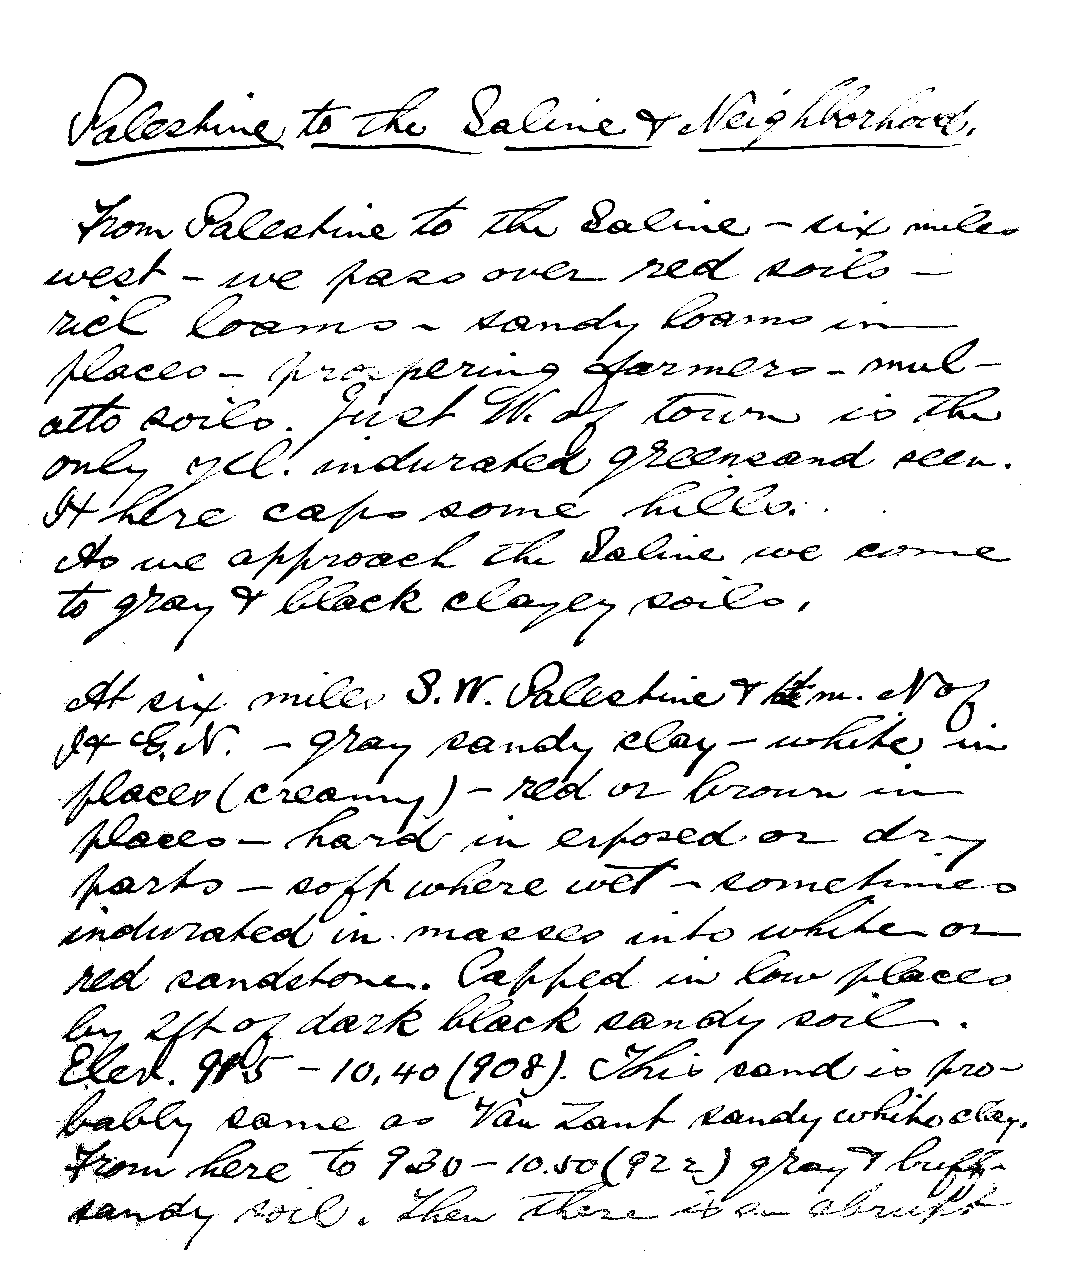 Palestine to the Saline & Neighborhood.
From Palestine to the Saline – six miles
west – we pass over red soils –
rich loams – sandy loams in
places – prospering farmers – mul-
atto soils. Just W. of town is the
only yel. indurated greensand seen.
It here caps some hills.
As we approach the Saline we come
to gray & black clayey soils.
At six miles S.W. Palestine & m. N of
I & G.N. – gray sandy clay – white in
places (creamy) – red or brown in
places – hard in exposed or dry
parts – soft where wet – sometimes
indurated in masses into white or
red sandstone. Capped in low places
by 2ft of dark black sandy soil.
Elev. – 10.40 (908). This sand is pro-
bably same as Van Zant sandy white clay.
From here to 9.30 – 10.50 (922) gray & buff
sandy soil. Then there is an abrupt